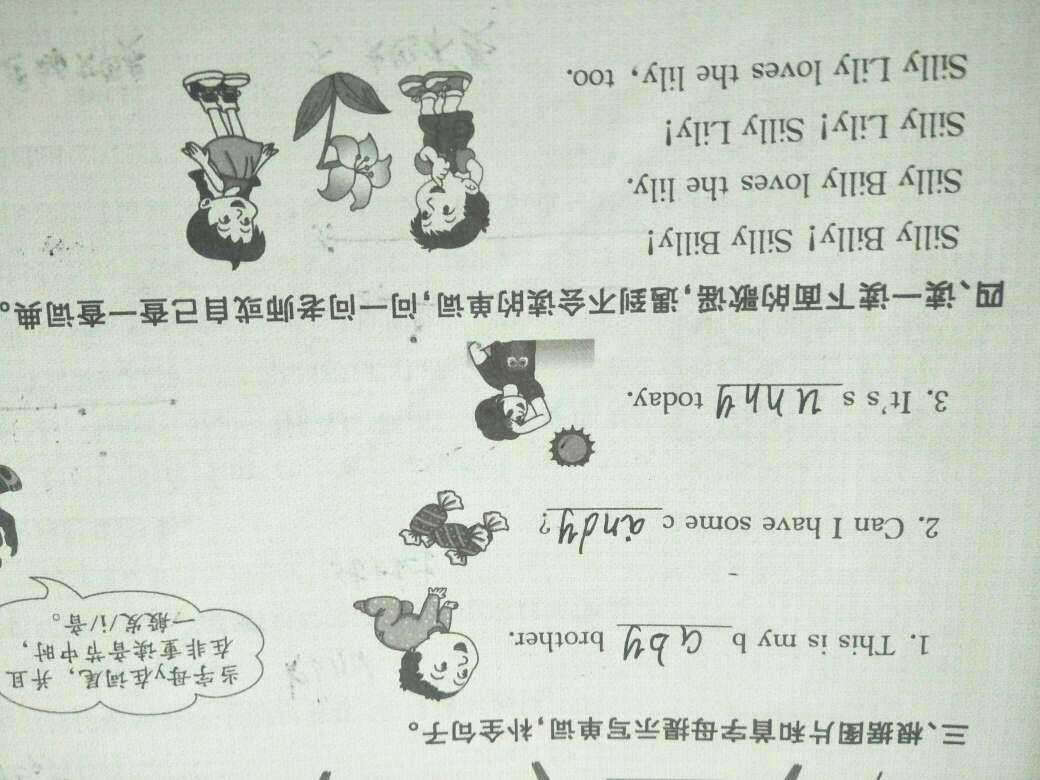 三、根据图片和首字母提示写单词，补全句子。
当字母y在词尾，并且
在非重读音节中时，
一般发/i/音。
1. This is my b aby brother.
2. Can I have some c andy?
3. It's s unny today.
四、读一读下面的歌谣，遇到不会读的单词，问一问老师或自己查一查词典。
Silly Billy! Silly Billy!
Silly Billy loves the lily.
Silly Lily! Silly Lily!
Silly Lily loves the lily, too.